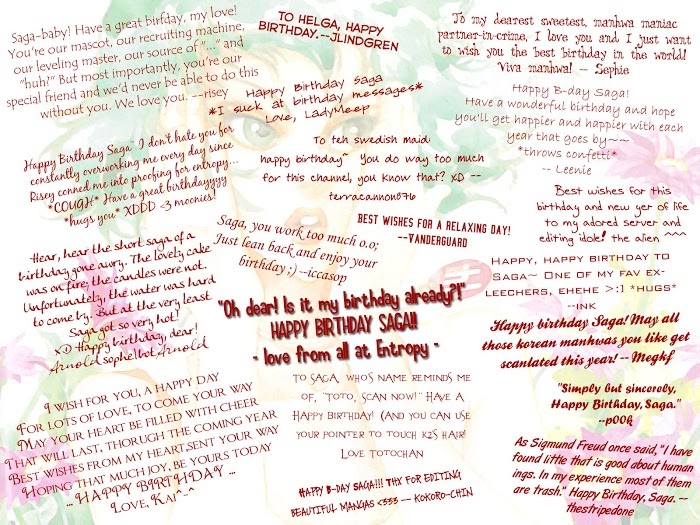 Saga-baby! Have a great birfday, my love!
You're our mascot, our recruiting machine,
our leveling master, our source of "..." and
"huh?" But most importantly, you're our
special friend and we'd never be able to do this
without you. We love you. --risey
TO HELGA, HAPPY
BIRTHDAY.--JLINDGREN
To my dearest sweetest, manhwa maniac
partner-in-crime, I love you and I just want
to wish you the best birthday in the world!
Viva manhwa! - Sephie
Happy Birthday Saga
*I suck at birthday messages*
Love, LadyMeep
Happy B-day Saga!
Have a wonderful birthday and hope
you'll get happier and happier with each
year that goes by~~
*throws confetti*
-- Leenie
Happy Birthday Saga- I don't hate you for
constantly overworking me every day since
Risey conned me into proofing for entropy...
*COUGH* Have a great birthdayyyy
*hugs you* XDDD <3 moonies!
To teh swedish maid:
happy birthday~ You do way too much
for this channel, you know that? xD --
terracannon876
Best wishes for this
birthday and new yer of life
to my adored server and
editing idole! the alien ^^^
BEST WISHES FOR A RELAXING DAY!
--VANDERGUARD
Saga, you work too much o.o;
Just lean back and enjoy your
birthday ;) --iccasop
Hear, hear the short saga of a
birthday gone awry. The lovely cake
was on fire; the candles were not.
Unfortunately, the water was hard
to come by. But at the very least
Saga got so very hot!
xD Happy birthday, dear!
Arnold sophe!!bot Arnold
HAPPY, HAPPY BIRTHDAY TO
SAGA~ ONE OF MY FAV EX-
LEECHERS, EHEHE >:] *HUGS*
--INK
"Oh dear! Is it my birthday already?!"
HAPPY BIRTHDAY SAGA!!
- love from all at Entropy -
Happy birthday Saga! May all
those korean manhwas you like get
scanlated this year! -- Megkf
I WISH FOR YOU, A HAPPY DAY
FOR LOTS OF LOVE, TO COME YOUR WAY
MAY YOUR HEART BE FILLED WITH CHEER
THAT WILL LAST, THORUGH THE COMING YEAR
BEST WISHES FROM MY HEART,SENT YOUR WAY
HOPING THAT MUCH JOY, BE YOURS TODAY
... HAPPY BIRTHDAY ...
LOVE, KAI^-^
TO SAGA, WHO'S NAME REMINDS ME
OF, "TOTO, SCAN NOW!" HAVE A
HAPPY BIRTHDAY! (AND YOU CAN USE
YOUR POINTER TO TOUCH K2'S HAIR!
LOVE TOTOCHAN
"Simply but sincerely,
Happy Birthday, Saga."
--p00k
HAPPY B-DAY SAGA!!! THX FOR EDITING
BEAUTIFUL MANGAS <333 -- KOKORO-CHIN
As Sigmund Freud once said, "I have
found little that is good about human
ings. In my experience most of them
are trash." Happy Birthday, Saga. --
thestripedone